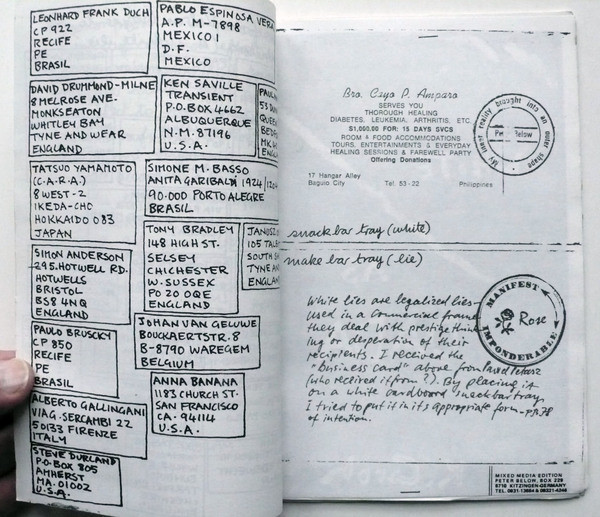 LEONHARD FRANK DUCH
CP 922
RECIFE
PE
BRASIL
PABLO ESPINOSA VERA
A.P. M-7898
MEXICO 1
D.F.
MEXICO
DAVID DRUMMOND-MILNE
8 MELROSE AVE.
MONKSEATON
WHITLEY BAY
TYNE AND WEAR
ENGLAND
KEN SAVILLE
TRANSIENT
P.O. BOX 4662
ALBUQUERQUE
N.M. 87196
U.S.A.
TATSUO YAMAMOTO
(C.A.R.A.)
8 WEST-2
IKEDA-CHO
HOKKAIDO 083
JAPAN
SIMONE M. BASSO
ANITA GARIBALDI 1924/1204
90.000 PORTO ALEGRE
BRASIL
SIMON ANDERSON
295.HOTWELL RD.
HOTWELLS
BRISTOL
BS8 4NQ
ENGLAND
TONY BRADLEY
148 HIGH ST.
SELSEY
CHICHESTER
W. SUSSEX
PO 20 OQE
ENGLAND
JANUSZ
105 TAL
SOUTH
TYNE AN
ENGLAN
PAULO BRUSCKY
CP 850
RECIFE
PE
BRASIL
JOHAN VAN GELUWE
BOUCKAERTSTR. 8
B-8790 WAREGEM
BELGIUM
ALBERTO GALLINGANI
VIA G. SERCAMBI 22
50133 FIRENZE
ITALY
ANNA BANANA
1183 CHURCH ST.
SAN FRANCISCO
CA. 94114
U.S.A.
STEVE DURLAND
P.O. BOX 805
AMHERST
MA. 01002
U.S.A.
Bro. Ceyo P. Amparo
SERVES YOU
THOROUGH HEALING
DIABETES, LEUKEMIA, ARTHRITIS, ETC.
$1,000.00 FOR: 15 DAYS SVCS
ROOM & FOOD ACCOMMODATIONS
TOURS, ENTERTAINMENTS & EVERYDAY
HEALING SESSIONS & FAREWELL PARTY
Offering Donations
17 Hangar Alley
Baguio City Tel. 53-22 Philippines
My inner reality brought into an outer shape
Below
snack bar tray (white)
make bar tray (lie)
White lies are legalized lies
used in a commercial frame
they deal with prestige think
ing or desperation of their
recipients. I received the
"business card" above from
(who received it from ?). By placing it
on a white cardboard snack bar tray
I tried to put it in its appropriate form
of intention.
MANIFEST
Rose
IMPONDERABLE
MIXED MEDIA EDITION
PETER BELOW, BOX 229
8710 KITZINGEN-GERMANY